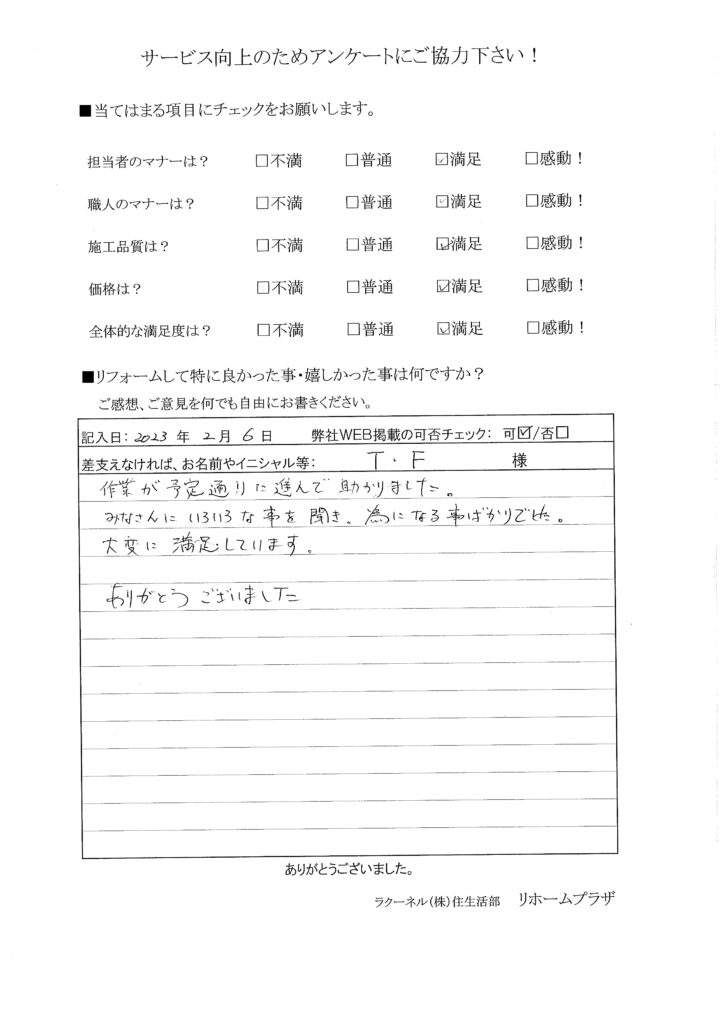 サービス向上のためアンケートにご協力下さい！
■当てはまる項目にチェックをお願いします。
担当者のマナーは？ □不満 □普通 ☑満足 □感動！
職人のマナーは？ □不満 □普通 ☑満足 □感動！
施工品質は？ □不満 □普通 ☑満足 □感動！
価格は？ □不満 □普通 ☑満足 □感動！
全体的な満足度は？ □不満 □普通 ☑満足 □感動！
■リフォームして特に良かった事・嬉しかった事は何ですか？
ご感想、ご意見を何でも自由にお書きください。
記入日：2023 年 2 月 6 日 弊社WEB掲載の可否チェック：可☑/否□
差支えなければ、お名前やイニシャル等： T・F 様
作業が予定通りに進んで助かりました。
みなさんにいろいろな事を聞き、為になる事ばかりでした。
大変に満足しています。
ありがとうございました
ありがとうございました。
ラクーネル（株）住生活部 リホームプラザ